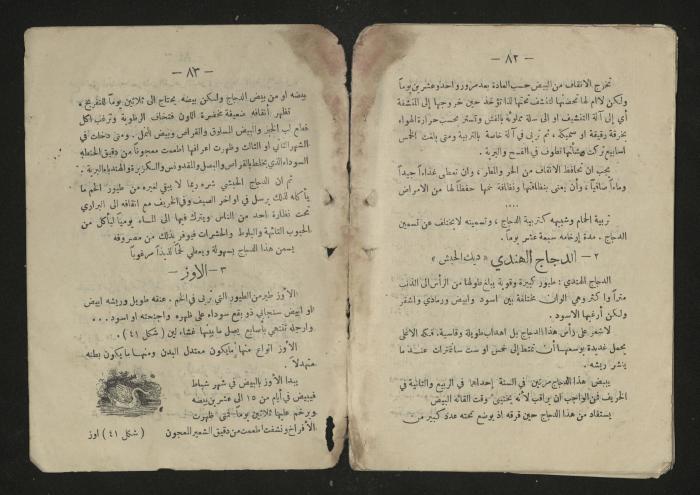 — ٨٢ —
تخرج الانقاف من البيض حسب العادة بعد مرور واحد وعشرين يوماً
ولكن لا ام لها تحضنها لتنشف تحتها لذا تؤخذ حين خروجها الى المنشفة
أي إلى آلة التنشيف او الى سلة مملوءة بالقش وتستر محسب حرارة الهواء
بخرقة رقيقة او سميكة، ثم تربى في آلة خاصة بالتربية ومتى بلغت الخمس
اسابيع تركت وشأنها تطوف في الفسح والبرية.
يجب ان تحافظ الانقاف من الحر والمطر، وان تعطى غذاءً جيداً
وماءً صافياً، وأن يعنى بنظافتها ونظافة خمها حفظاً لها من الامراض
....
تربية الحمام وشبيهه كتربية الدجاج، وتسمينه لا يختلف عن تسمين
الدجاج. مدة إرخامه سبعة عشر يوماً.
٢ — الدجاج الهندي « ديك الحبش »
الدجاج الهندي: طيور كبيرة وقوية يبلغ طولها من الرأس الى الذنب
متراً واكثر وهي الوان مختلفة بين اسود وابيض ورمادي واشقر
ولكن أرغبها الاسود.
لا شعر على رأس هذا الدجاج بل اهداب طويلة وقاسية. فكه الاعلى
يحمل غديدة بوسعها أن تتمطط إلى خمس او ست سانتمترات عند ما
ينشر ريشه.
يبيض هذا الدجاج مرتين في السنة إحداهما في الربيع والثانية في
الخريف فمن الواجب ان يراقب لأنه يختبئ وقت القائه البيض
يستفاد من هذا الدجاج حين قرقه اذ يوضع تحته عدد كبير من
— ٨٣ —
بيضه او من بيض الدجاج ولكن بيضه يحتاج الى ثلاثين يوماً للتفريخ،
تظهر أنقافه ضعيفة مخضرة اللون فتخاف الرطوبة وترغب اكل
فعام لب الخبز والبيض المسلوق والقراص وبيض النمل. ومتى دخلت في
الشهر الثاني او الثالث وظهرت اعرافها اطعمت معجوناً من دقيق الحنطة
السوداء الذي يخلط بالقراص والبصل والمقدونس والكزبرة والهندباء البرية.
ثم ان الدجاج الحبشي شره ربما لا يبقي لغيره من طيور الخم ما
يأكله لذلك يرسل في اواخر الصيف وفي الخريف مع انقافه الى البراري
تحت نظارة احد من الناس ويترك فيها الى المساء يومياً ليأكل من
الحبوب التائهة والبلوط والحشرات فيوفر بذلك من مصروفه
يسمن هذا الدجاج بسهولة ويعطي لحماً لذيذاً مرغوباً
٣ — الأوز
الأوز طير من الطيور التي تربى في الخم. عنقه طويل وريشه ابيض
او ابيض سنجابي ذو بقع سوداء على ظهره واجنحته او اسود...
وارجله تنتهي بأصابع يصل ما بينها غشاء لين ( شكل ٤١ ).
الأوز انواع منها مايكون معتدل البدن ومنها ما يكون بطنه
متهدلاً.
يبدأ الأوز بالبيض في شهر شباط
فيبيض في أيام من ١٥ الى عشرين بيضه
ويرخم عليها ثلاثين يوماً. فتى ظهرت
الأفراخ ونشفت اطعمت من دقيق الشعير المعجون
( شكل ٤١ ) اوز